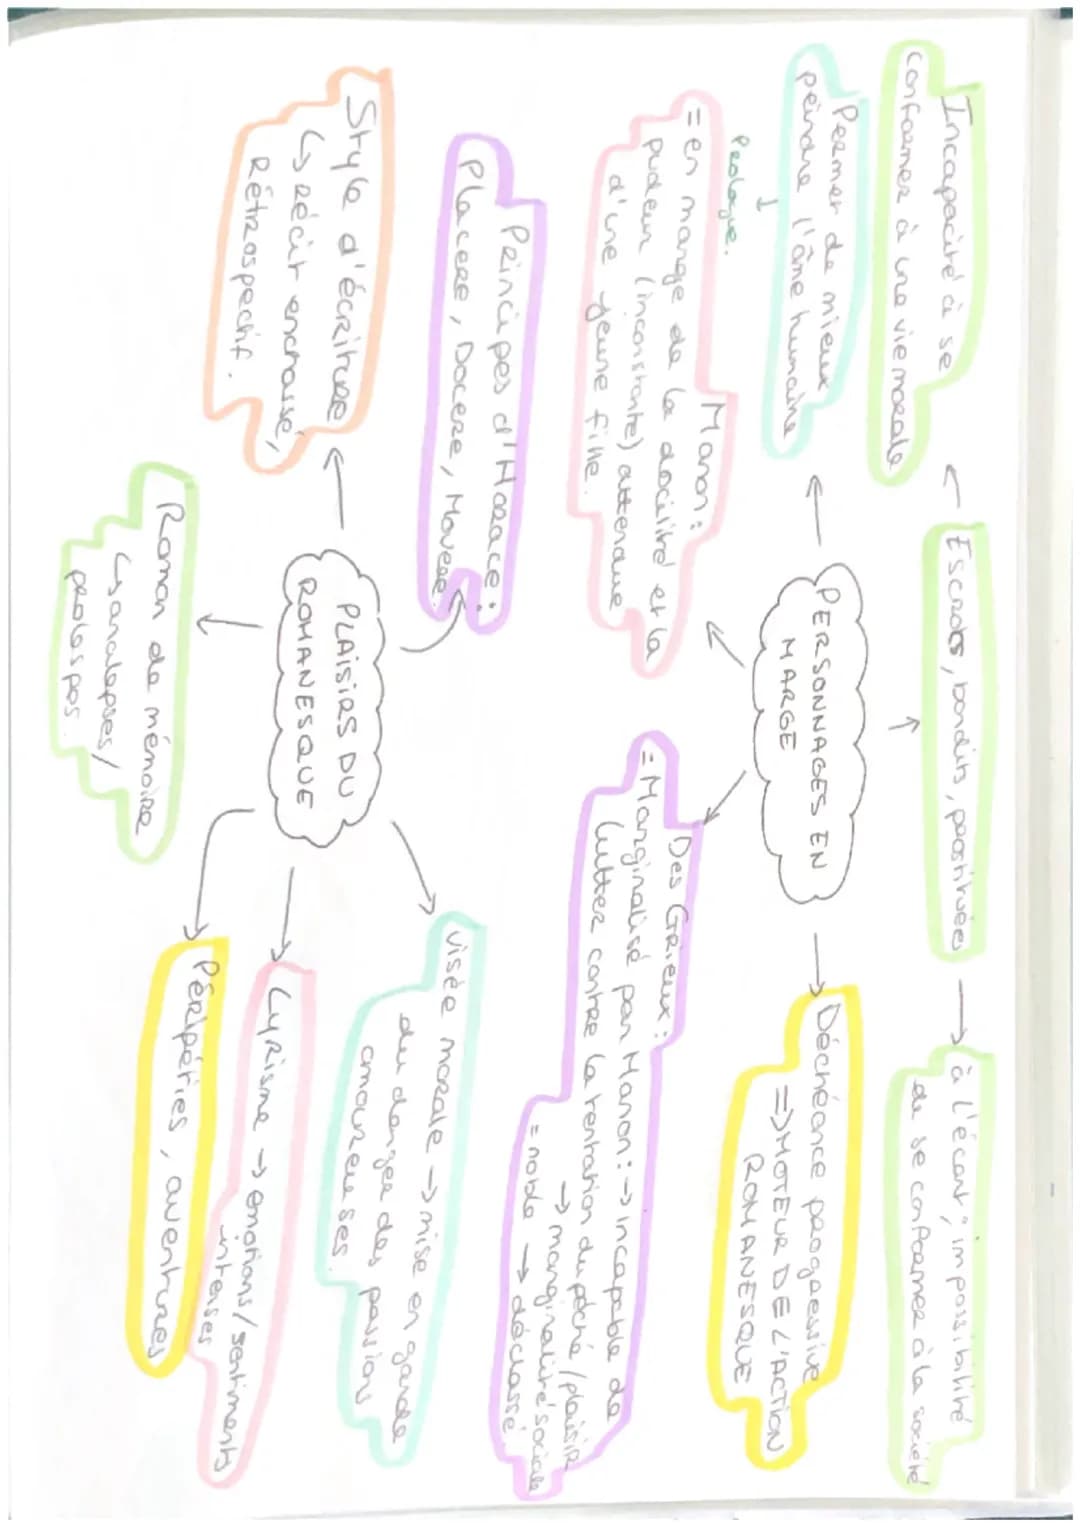 Incapacité à se
conformer à une vie morale
Escrocs, bandits, prostituées
à l'écart, impossibilité
de se conformer à la société
Permet de mieux
peindre l'âme humaine
Prologue.
PERSONNAGES EN
MARGE
Déchéance progressive
=> MOTEUR DE L'ACTION
ROMANESQUE
Manon :
= en marge de la docilité et la
pudeur (inconstante) attendue
d'une jeune fille.
Des Grieux :
= Marginalisé par Manon : -> incapable de
lutter contre la tentation du péché / plaisir
-> marginalité sociale
= noble -> déclassé
Principes d'Horace :
Placere, Docere, Movere.
Style d'écriture
↳ récit enchassé,
Rétrospectif.
PLAISIRS DU
ROMANESQUE
visée morale -> mise en garde
du danger des passions
amoureuses.
Lyrisme -> émotions / sentiments
intenses
Roman de mémoire
↳ analepses /
prolespes.
Péripéties, aventures